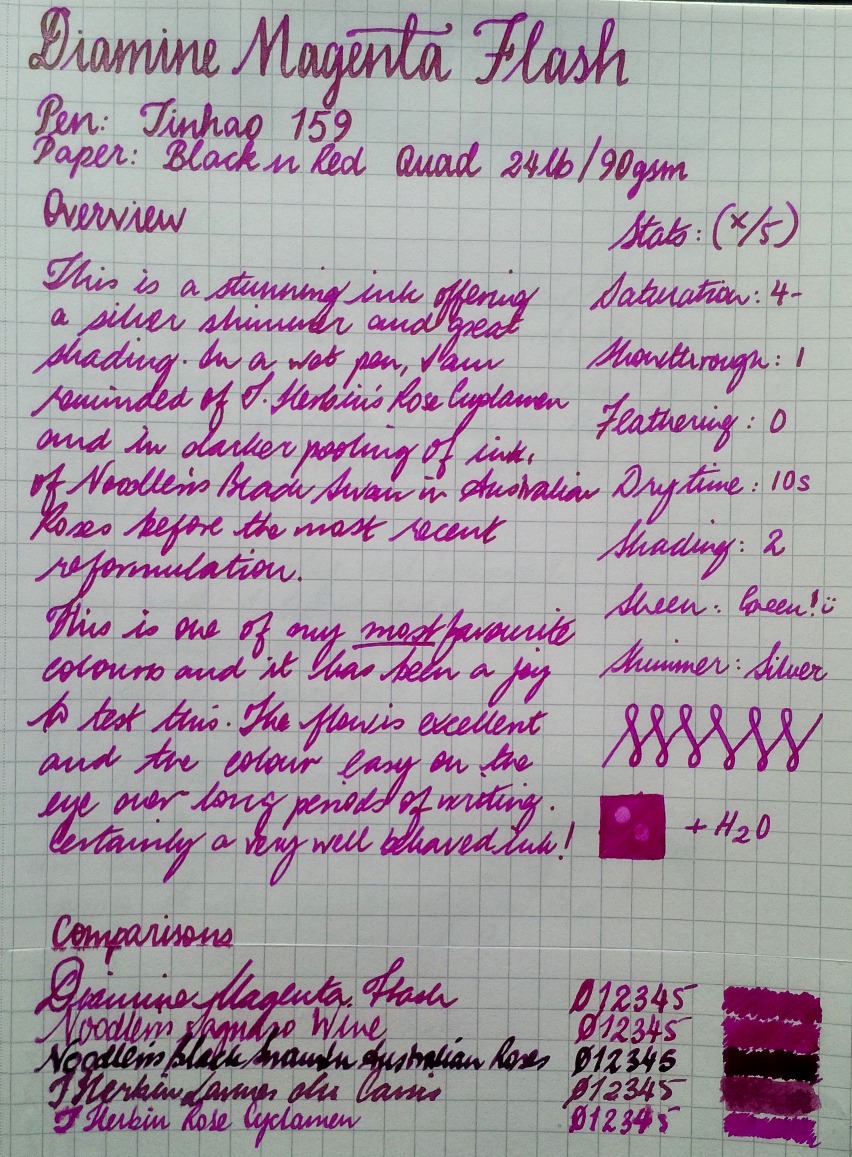 Diamine Magenta Flash
Pen: Jinhao 159
Paper: Black n Red Quad 24lb/90gsm
Overview
This is a stunning ink offering
a silver shimmer and great
shading. In a wet pen, I am
reminded of J. Herbin's Rose Cyclamen
and in darker pooling of ink,
of Noodler's Black Swan in Australian
Roses before the most recent
reformulation.
This is one of my most favourite
colours and it has been a joy
to test this. The flow is excellent
and the colour easy on the
eye over long periods of writing.
Certainly a very well behaved ink!
Stats: (x/5)
Saturation: 4-
Showthrough: 1
Feathering: 0
Dry time: 10s
Shading: 2
Sheen: Green! ü
Shimmer: Silver
+ H2O
Comparisons
Diamine Magenta Flash 012345
Noodler's Saguaro Wine 012345
Noodler's Black Swan in Australian Roses 012345
J Herbin Larmes de Cassis 012345
J Herbin Rose Cyclamen 012345